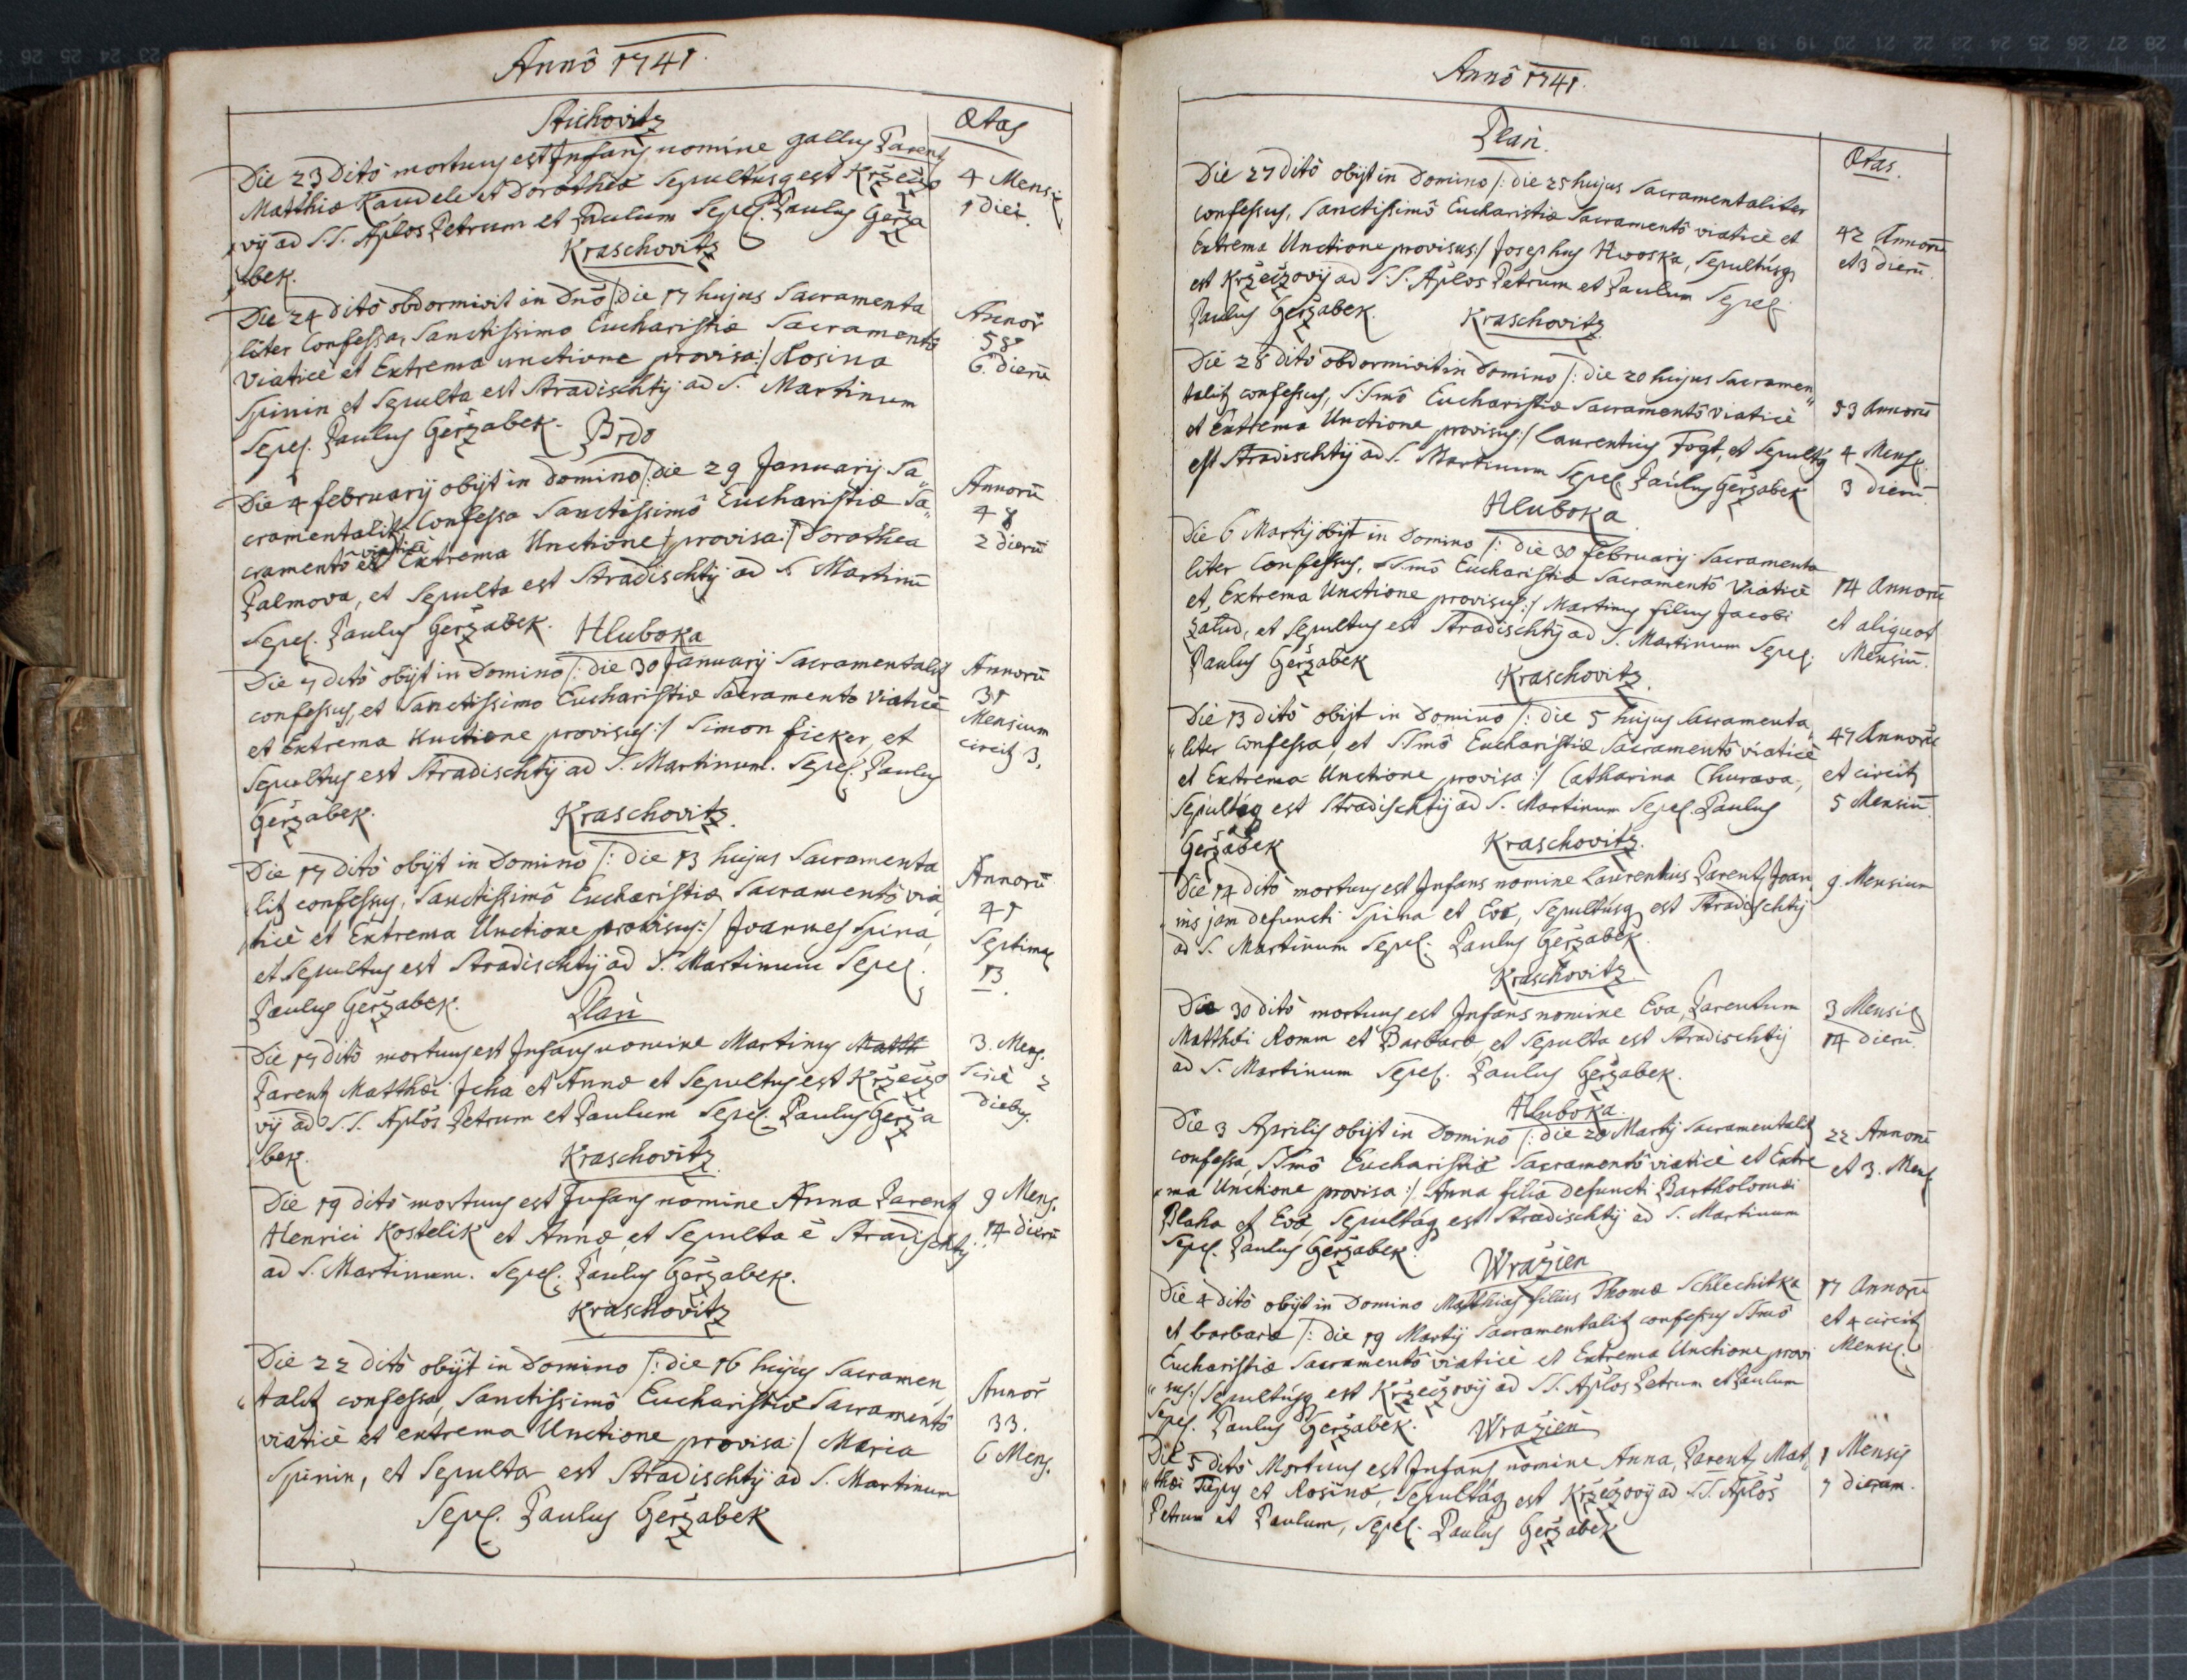 Annô 1741.
Stichovitz
Ætas
Die 23 Dito mortuus est Infans nomine gallus Parent
Matthiæ Kaudele et Dorotheæ Sepultusq est Kržeczo
vij ad S.S. Aplos Petrum et Paulum Sepel. Paulus Gerza
bek.
4 Mensi
1 Diei
Kraschovitz
Die 24 ditô obdormivit in Dnô /: die 17 hujus Sacramenta
liter Confessa, Sanctissimo Eucharistiæ Sacramentô
Viaticè et Extrema unctione provisa :/ Rosina
Spinin et Sepulta est Stradischtij ad S. Martinum
Sepel. Paulus Geržabek.
Annor
58
6 dierū
Brdo
Die 4 februarij obijt in Domino /: die 29 Januarij Sa„
cramentalit Confessa Sanctissimô Eucharistiæ Sa„
cramentô viaticè et Extrema Unctione provisa :/ Dorothea
Palmova, et Sepulta est Stradischtij ad S. Martinū
Sepel. Paulus Geržabek.
Annorū
48
2 dierū
Hluboka
Die 7 dito obijt in Domino /: die 30 Januarij Sacramentalit
confessus, et Sanctissimo Eucharistiæ Sacramento Viaticè
et Extrema Unctione provisus :/ Simon ficker, et
Sepultus est Stradischtij ad S. Martinum. Sepel. Paulus
Geržabek.
Annorū
31
Mensium
circit 3.
Kraschovitz.
Die 17 ditô obijt in Domino /: die 13 hujus Sacramenta
lit confessus, Sanctissimô Eucharistiæ Sacramentô via
ticè et Extrema Unctione provisus :/ Joannes Spina,
et Sepultus est Stradischtij ad S. Martinum Sepel.
Paulus Geržabek.
Annorū
41
Septima
13.
Plan
Die 17 ditô mortuus est Infans nomine Martinus Matth
Parent Matthæi Jcha et Annæ et Sepultus est Kržeczo
vij ad S.S. Aplôs Petrum et Paulum Sepel. Paulus Gerža
bek.
3. Mens.
Sinè 2
diebus.
Kraschovitz
Die 19 ditô mortuus est Infans nomine Anna Parent
Henrici Kostelik et Annæ, et Sepulta ê Stradischtij
ad S. Martinum. Sepel. Paulus Geržabek.
9 Mens.
14 dierū
Kraschovitz
Die 22 ditô obijt in Domino /: die 16 hujus Sacramen
„talit confessa, Sanctissimô Eucharistiæ Sacramentô
viaticè et extrema Unctione provisa :/ Maria
Spinin, et Sepulta est Stradischtij ad S. Martinum
Sepel. Paulus Geržabek
Annor
33.
6 Mens.
Annô 1741.
Plan.
Ætas.
Die 27 ditô obijt in Domino /: die 25 hujus Sacramentaliter
confessus, Sanctissimô Eucharistiæ Sacramentô viaticè et
Extrema Unctione provisus :/ Josephus Hwoska, Sepultusq
est Kržeczovij ad S.S. Aplos Petrum et Paulum Sepel
Paulus Geržabek.
42 Annorū
et 3 dierū.
Kraschovitz
Die 28 ditô obdormivit in Domino /: die 20 hujus Sacramen„
talit confessus, S:Smô Eucharistiæ Sacramentô viaticè
et Extrema Unctione provisus :/ Laurentius Fogt, et Sepultus
est Stradischtij ad S. Martinum Sepel Paulus Geržabek
53 Annorū
4 Mens.
3 dierū
Hluboka
Die 6 Martij obijt in Domino /: die 30 februarij Sacramenta
liter Confessus, SSmô Eucharistiæ Sacramentô Viaticè
et, Extrema Unctione provisus :/ Martinus filius Jacobi
Zalud, et Sepultus est Stradischtij ad S. Martinum Sepel.
Paulus Geržabek
14 Annorū
et aliquot
Mensiū.
Kraschovitz.
Die 13 ditô obijt in Domino /: die 5 hujus Sacramenta„
„liter confessa, et SSmô Eucharistiæ Sacramentô viaticè
et Extrema Unctione provisa :/ Catharina Churava,
Sepultaq est Stradischtij ad S. Martinum Sepel. Paulus
Geržabek
47 Annorū
et circit
5 Mensiū
Kraschovitz.
Die 14 ditô mortuus est Infans nomine Laurentius Parent Joan„
nis jam defuncti Spina et Evæ, Sepultusq est Stradischtij
ad S. Martinum Sepel. Paulus Geržabek.
9 Mensium
Kraschovitz
Die 30 ditô mortuus est Infans nomine Eva, Parentum
Matthæi Romm et Barbaræ, et Sepulta est Stradischtij
ad S. Martinum Sepel. Paulus Geržabek.
3 Mensis
14 dierū.
Hluboka.
Die 3 Aprilis obijt in Domino /: die 20 Martij Sacramentalit
confessa, SSmô Eucharistiæ Sacramentô viaticè et Extre
ma Unctione provisa :/ Anna filia defuncti Bartholomæi
Blaha et Evæ, Sepultaq est Stradischtij ad S. Martinum
Sepel. Paulus Geržabek.
22 Annorū
et 3. Mens
Wražien
Die 4 ditô obijt in Domino Matthias filius Thomæ Schlechitka
et barbaræ /: die 19 Martij Sacramentalit confessus SSmô
Eucharistiæ Sacramentô viaticè et Extrema Unctione provi
„sus :/ Sepultusq est Kržeczovij ad SS. Aplos Petrum et Paulum
Sepel. Paulus Geržabek.
17 Annorū
et 4 circit
Mensis.
Wražien
Die 5 ditô Mortuus est Infans nomine Anna, Parent Mat„
„thæi et Rosinæ, Sepultaq est Kržeczovij ad S.S. Aplôs
Petrum et Paulum, Sepel. Paulus Geržabek
1 Mensis
7 dierum.